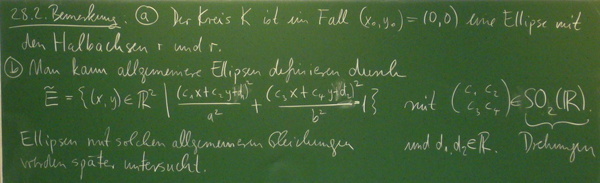 28.2. Bemerkung. (a) Der Kreis K ist im Fall (x₀,y₀) = (0,0) eine Ellipse mit
den Halbachsen r und r.
(b) Man kann allgemeinere Ellipsen definieren durch
Ẽ = {(x,y) ∈ ℝ² | (c₁x+c₂y+d₁)²/a² + (c₃x+c₄y+d₂)²/b² = 1} mit (c₁ c₂ c₃ c₄) ∈ SO₂(ℝ).
Ellipsen mit solchen allgemeineren Gleichungen und d₁,d₂ ∈ ℝ. Drehungen
werden später untersucht.